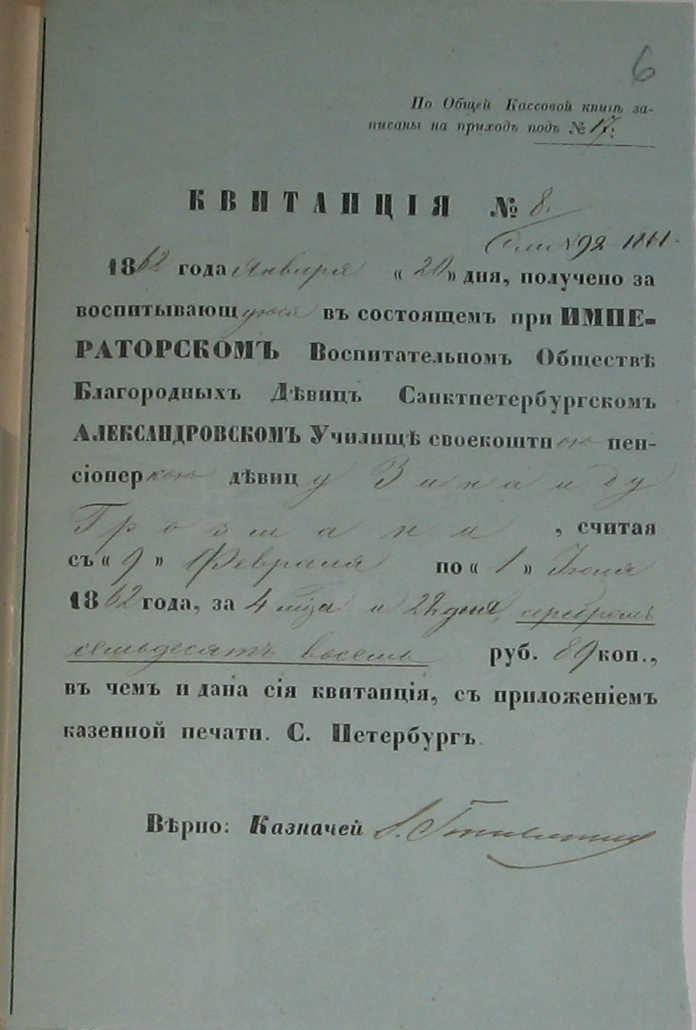 6
По Общей Кассовой книгѣ за-
писаны на приходъ подъ № 17.
КВИТАНЦІЯ № 8.
№ 92 1861
1862 года Января „20" дня, получено за
воспитывающуюся въ состоящемъ при ИМПЕ-
РАТОРСКОМЪ Воспитательномъ Обществѣ
Благородныхъ Дѣвицъ Санктпетербургскомъ
АЛЕКСАНДРОВСКОМЪ Училищѣ своекоштною пен-
сіонеркою дѣвицу Зинаиду
, считая
съ „9" Февраля по „1" Іюля
1862 года, за 4 мѣсца и 22 дня, серебромъ
семьдесятъ восемь руб. 89 коп.,
въ чемъ и дана сія квитанція, съ приложеніемъ
казенной печати. С. Петербургъ.
Вѣрно: Казначей